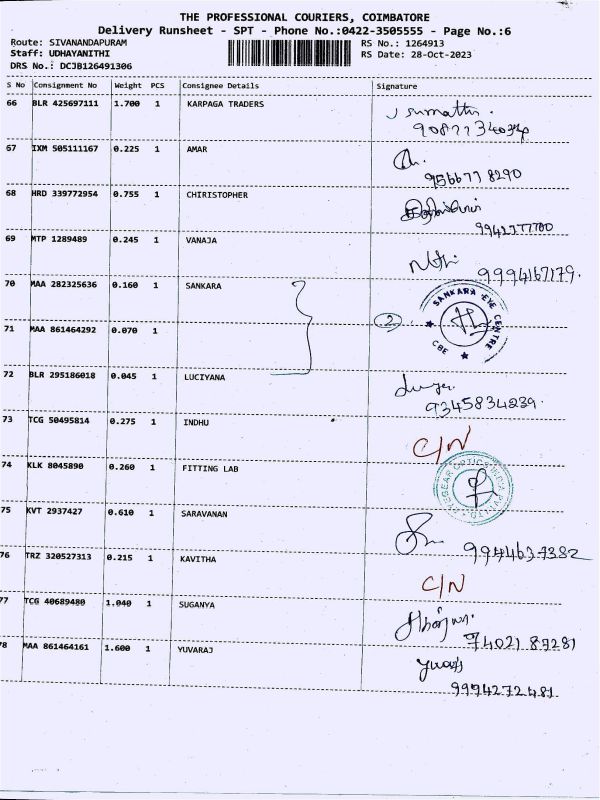 THE PROFESSIONAL COURIERS, COIMBATORE
Delivery Runsheet - SPT - Phone No.:0422-3505555 - Page No.:6
Route: SIVANANDAPURAM RS No.: 1264913
Staff: UDHAYANITHI RS Date: 28-Oct-2023
DRS No.: DCJB126491306
S No Consignment No Weight PCS Consignee Details Signature
66 BLR 425697111 1.700 1 KARPAGA TRADERS
67 IXM 505111167 0.225 1 AMAR
9566778290
68 HRD 339772954 0.755 1 CHIRISTOPHER
69 MTP 1289489 0.245 1 VANAJA
9994167179.
70 MAA 282325636 0.160 1 SANKARA
SANKARA EYE CENTRE
CBE
2
71 MAA 861464292 0.070 1
72 BLR 295186018 0.045 1 LUCIYANA
9345834239.
73 TCG 50495814 0.275 1 INDHU
C/N
74 KLK 8045890 0.260 1 FITTING LAB
75 KVT 2937427 0.610 1 SARAVANAN
9944637382
76 TRZ 320527313 0.215 1 KAVITHA
C/N
77 TCG 40689480 1.040 1 SUGANYA
7402187281
78 MAA 861464161 1.600 1 YUVARAJ
9994272481